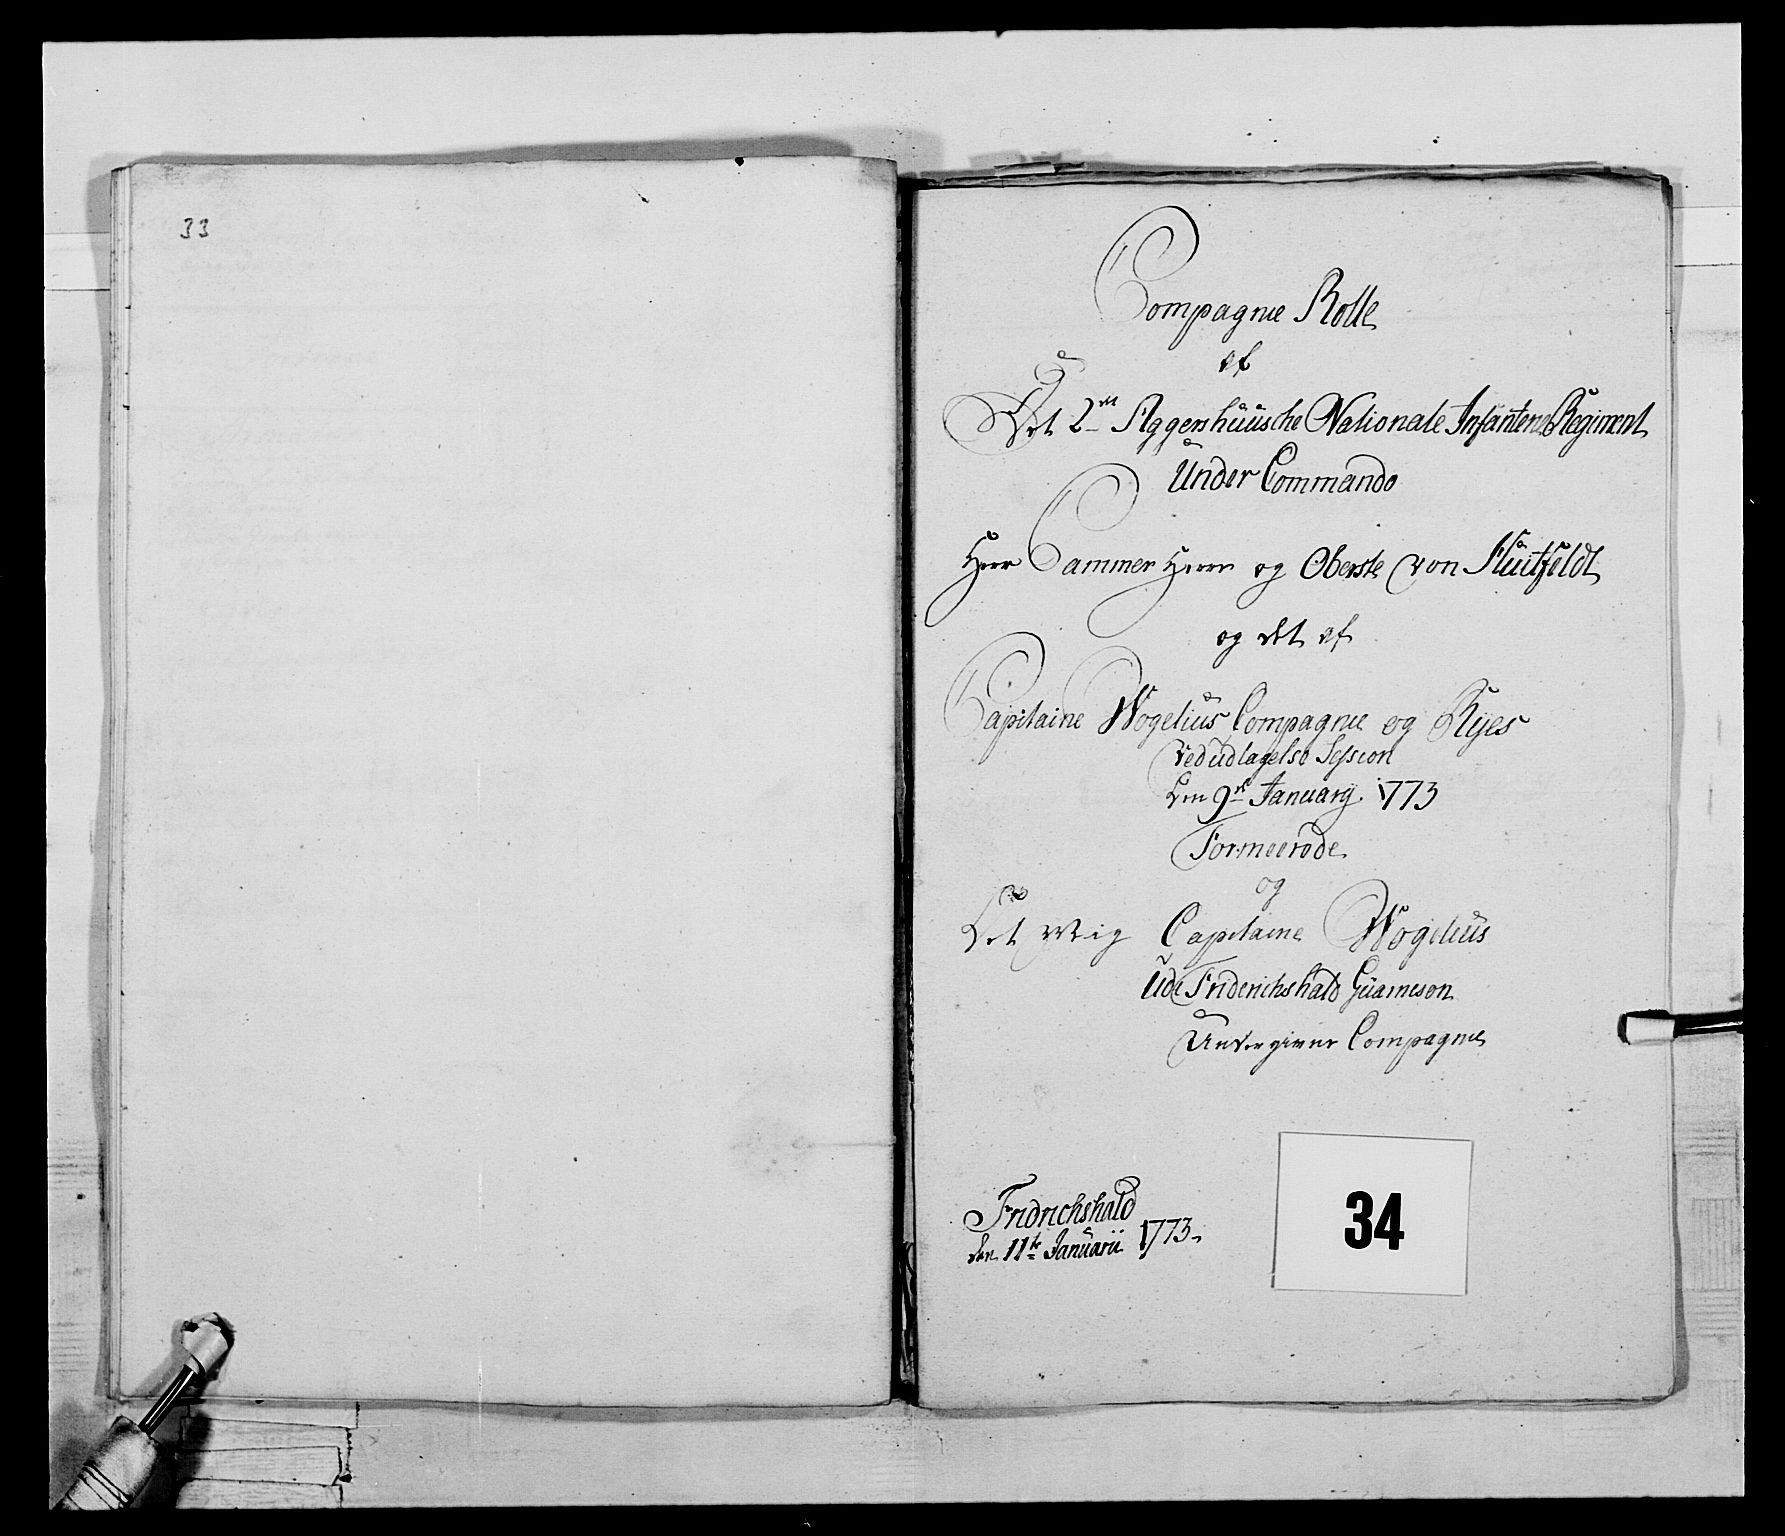 33
Compagnie Rolle
af
Det 2det Aggershuusche Nationale Infanterie Regiment
Under Commando
Herr Cammer Herre og Oberste von Huitfeldt
og det af
Capitaine Wogelius Compagnie og Ryes
Ved udtagelse Session
den 9de January 1773
Formeerede
og
Det Mig Capitaine Wogelius
Udi Friderichshald Guarneson
Undergivne Compagnie
Fridrichshald
den 11te Januarii 1773.
34